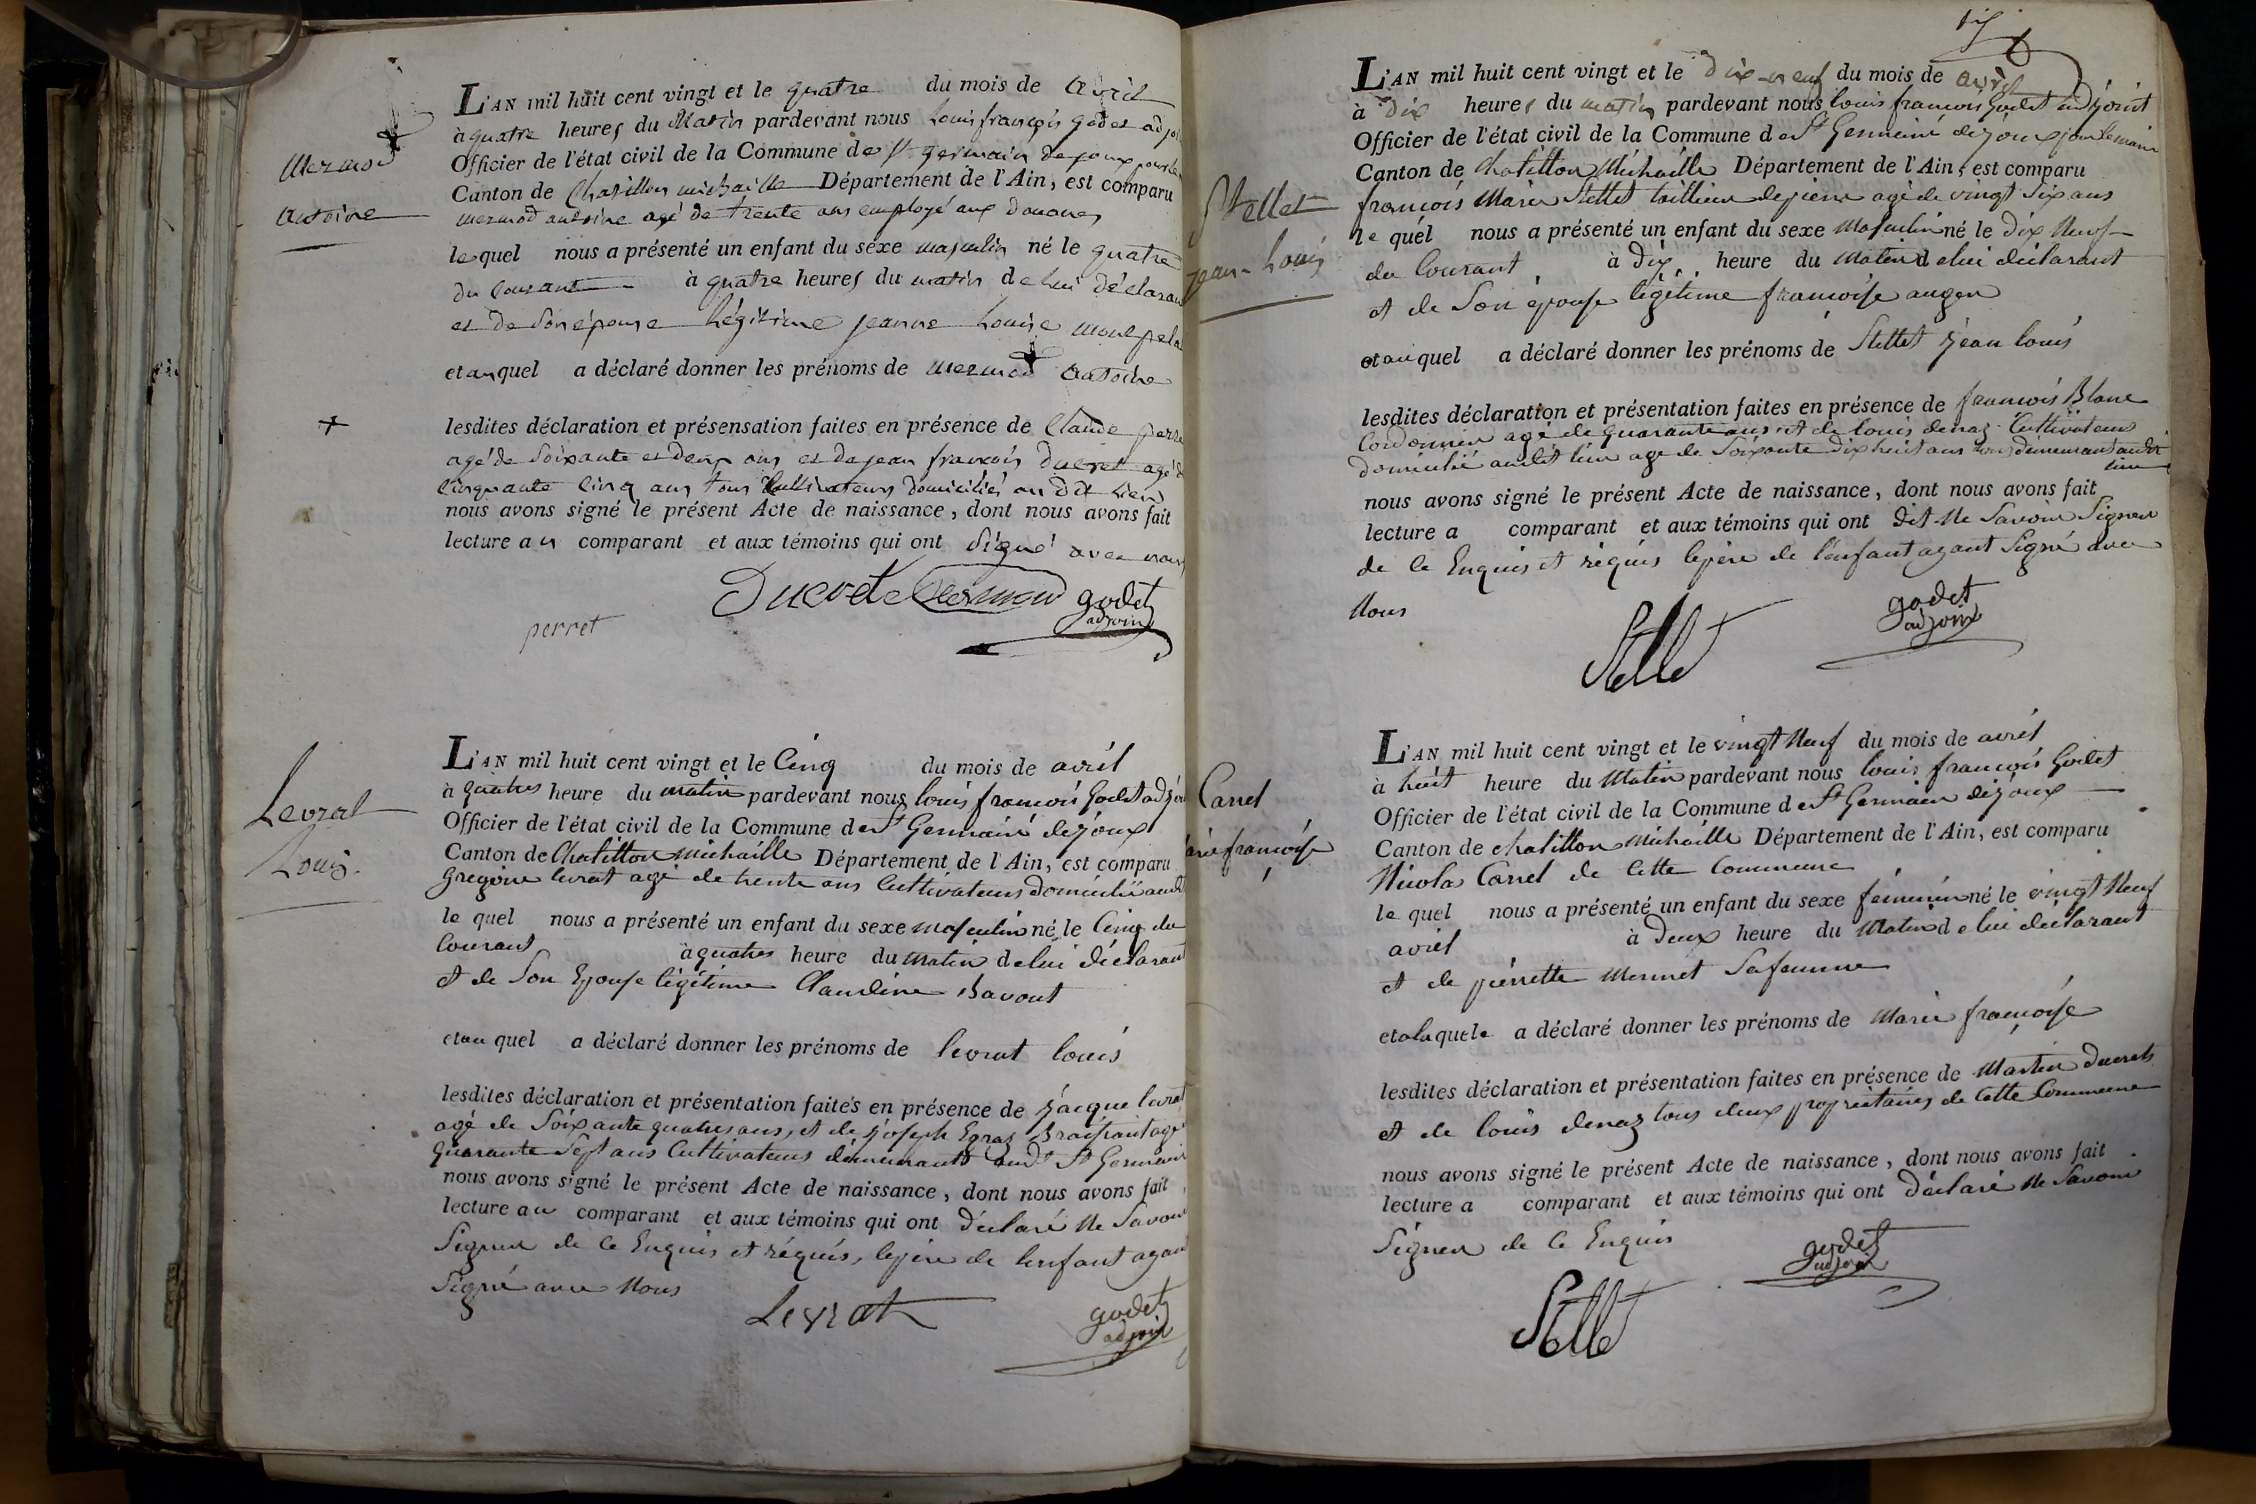 Mermod
Antoine
L'AN mil huit cent vingt et le quatre du mois de avril
à quatre heures du Matin pardevant nous Louis françois godet adjoi
Officier de l'état civil de la Commune de St germain dejoux pour le
Canton de Chatillon michaille Département de l'Ain, est comparu
mermod antoine agé de trente ans employé aux douanes
le quel nous a présenté un enfant du sexe masculin né le quatre
du Courant à quatre heures du matin de lui déclarant
et de Son épouse Légitime jeanne Louise
et au quel a déclaré donner les prénoms de Mermod Antoine
lesdites déclaration et présensation faites en présence de Claude perret
agé de Soixante et deux ans et de jean françois Ducret agé de
Cinquante Cinq ans tous Cultivateurs domiciliés au dit Lieu
nous avons signé le présent Acte de naissance, dont nous avons fait
lecture au comparant et aux témoins qui ont Signé avec nous
Ducret Mermod godet
adjoint
perret
Levrat
Louis
L'AN mil huit cent vingt et le Cinq du mois de avril
à quatres heure du matin pardevant nous louis françois Godet adjoi
Officier de l'état civil de la Commune de St Germain dejoux
Canton de Chatillon michaille Département de l'Ain, est comparu
Gregoire levrat agé de trente ans Cultivateurs domicilié audt
le quel nous a présenté un enfant du sexe masculin né le Cinq du
Courant à quatres heure du matin de lui déclarant
et de Son Epouse légitime Claudine Bavout
et au quel a déclaré donner les prénoms de levrat louis
lesdites déclaration et présentation faites en présence de jacque levrat
agé de Soixante quatres ans, et de joseph Egraz agé
quarante Sept ans Cultivateurs démeurants audt St Germain
nous avons signé le présent Acte de naissance, dont nous avons fait
lecture au comparant et aux témoins qui ont déclaré Ne Savoir
Signer de Ce Enquis et réquis, le père de lenfant ayant
Signé avec Nous
Levrat godet
adjoint
Stellet
jean-Louis
L'AN mil huit cent vingt et le dix-neuf du mois de avril
à dix heures du matin pardevant nous louis francois Godet adjoint
Officier de l'état civil de la Commune de St Germain dejoux pour le maire
Canton de Chatillon Michaille Département de l'Ain, est comparu
françois Marie Stellet taillieur de pierre agé de vingt Six ans
le quel nous a présenté un enfant du sexe Masculin né le dix Neuf
du Courant à dix heure du Matin de lui déclarant
et de Son épouse légitime françoise auger
et au quel a déclaré donner les prénoms de Stellet jean louis
lesdites déclaration et présentation faites en présence de françois Blanc
Cordonnier agé de quarante ans et de louis denaz Cultivateurs
domicilié audit lieu agé de Soixante dix huit ans tous démeurant audit
lieu
nous avons signé le présent Acte de naissance, dont nous avons fait
lecture a comparant et aux témoins qui ont dit Ne Savoir Signer
de Ce Enquis et réquis le père de l'enfant ayant Signé avec
Nous
Stellet godet
adjoint
Carrel
Marie françoise
L'AN mil huit cent vingt et le vingt Neuf du mois de avril
à huit heure du Matin pardevant nous louis françois Godet
Officier de l'état civil de la Commune de St Germain dejoux
Canton de chatillon Michaille Département de l'Ain, est comparu
Nicolas Carrel de Cette Commune
le quel nous a présenté un enfant du sexe féminin né le vingt Neuf
avril à deux heure du Matin de lui déclarant
et de pierrette Mermet Sa femme
et a laquelle a déclaré donner les prénoms de Marie françoise
lesdites déclaration et présentation faites en présence de Martin ducrets
et de louis denaz tous deux propriétaires de Cette Commune
nous avons signé le présent Acte de naissance, dont nous avons fait
lecture a comparant et aux témoins qui ont déclaré Ne Savoir
Signer de Ce Enquis
godet
adjoint
Stellet